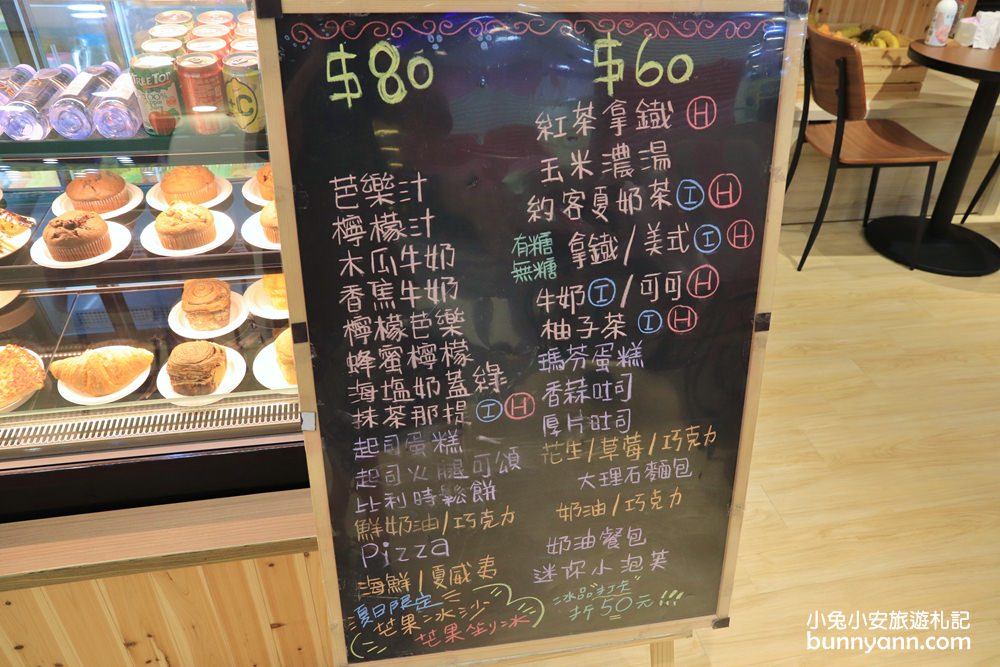 $80
芭樂汁
檸檬汁
木瓜牛奶
香蕉牛奶
檸檬芭樂
蜂蜜檸檬
海塩奶蓋綠
抹茶那提 I H
起司蛋糕
起司火腿可頌
比利時鬆餅
鮮奶油/巧克力
Pizza
海鮮/夏威夷
夏日限定
芒果冰沙
芒果剉冰
$60
紅茶拿鐵 H
玉米濃湯
約客夏奶茶 I H
有糖 無糖 拿鐵/美式 I H
牛奶 I /可可 H
柚子茶 I H
瑪芬蛋糕
香蒜吐司
厚片吐司
花生/草莓/巧克力
大理石麵包
奶油/巧克力
奶油餐包
迷你小泡芙
冰品"打卡"
折50元!!!
TREE TOP
+C
小兔小安旅遊札記
bunnyann.com